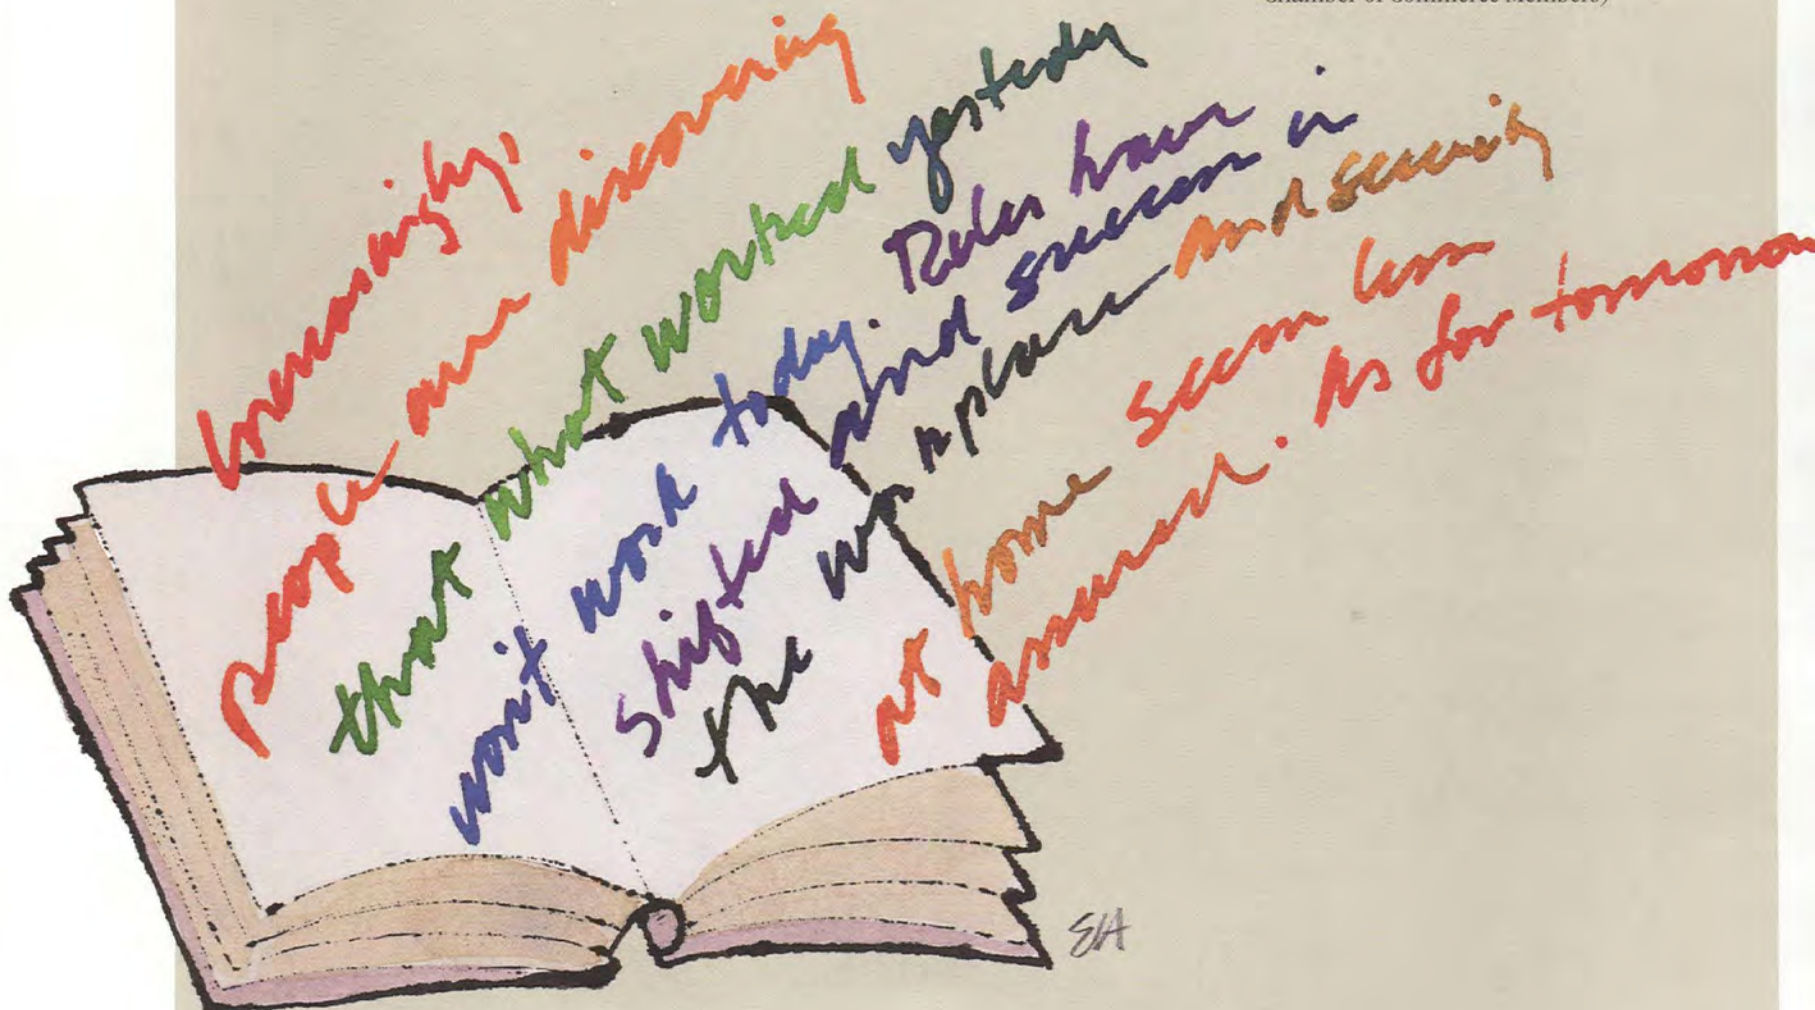 Chamber of Commerce Members)
Increasingly,
people are discovering
that what worked yesterday
won't work today. Rules have
shifted and success in
the workplace and security
at home seem less
assured. As for tomorrow